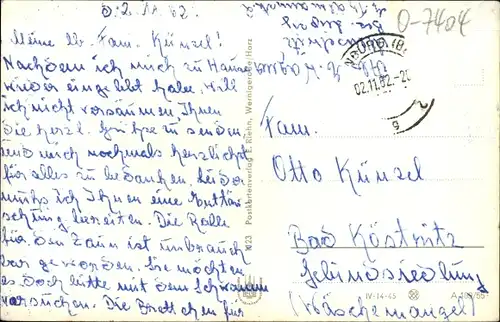 d. 2. 11. 62.
Meine lb. Fam. Künzel!
Nachdem ich mich zu Hause
wieder eingelebt habe will
ich nicht versäumen, Ihnen
die herzl. Grüße zu senden
und mich nochmals herzlichst
für alles zu bedanken. Leider
muß ich Ihnen eine Enttäu
schung bereiten. Die Rolle
für den Zaun ist unbrauch
bar geworden. Sie möchten
es doch bitte mit dem
versuchen. Die Brettchen für
1023 Postkartenverlag E. Riehn, Wernigerode/Harz
0-7404
02.11.62.-20
Fam.
Otto Künzel
Bad Köstritz
Gebindsiedlung
(Wäschemangel)
IV-14-45 A